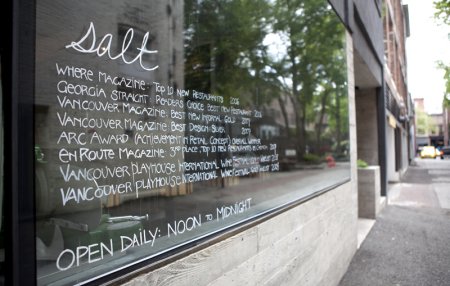 salt
WHERE MAGAZINE: TOP 10 NEW RESTAURANTS
GEORGIA STRAIGHT: READERS CHOICE BEST NEW RESTAURANT
VANCOUVER MAGAZINE: BEST NEW INFORMAL GOLD
VANCOUVER MAGAZINE: BEST DESIGN SILVER
ARC AWARD (ACHIEVEMENT IN RETAIL CONCEPT) OVERALL WINNER
EN ROUTE MAGAZINE: 3rd PLACE, TOP 10 NEW RESTAURANTS IN CANADA
VANCOUVER PLAYHOUSE INTERNATIONAL WINE FESTIVAL
VANCOUVER PLAYHOUSE INTERNATIONAL WINE FESTIVAL
OPEN DAILY: NOON TO MIDNIGHT